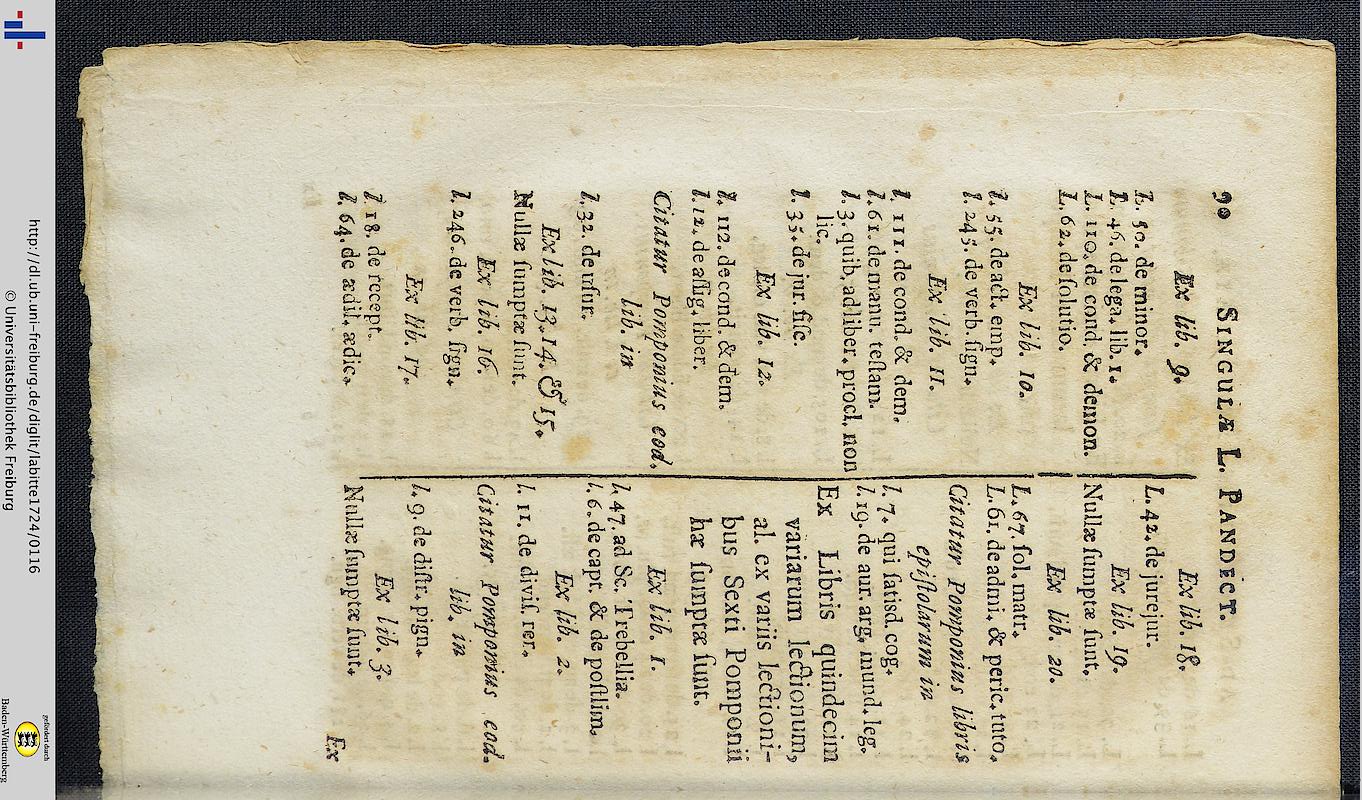 90 SINGULÆ L. PANDECT.
Ex lib. 9.
L. 50. de minor.
L. 46. de lega. lib. 1.
L. 110. de cond. & demon.
L. 62. de solutio.
Ex lib. 10.
l. 55. de act. emp.
l. 245. de verb. sign.
Ex lib. 11.
l. 111. de cond. & dem.
l. 61. de manu. testam.
l. 3. quib. ad liber. procl. non
lic.
l. 35. de jur. fisc.
Ex lib. 12.
l. 112. de cond. & dem.
l. 12. de assig. liber.
Citatur Pomponius eod.
lib. in
l. 32. de usur.
Ex lib. 13. 14. & 15.
Nullæ sumptæ sunt.
Ex lib. 16.
l. 246. de verb. sign.
Ex lib. 17.
l. 18. de recept.
l. 64. de ædil. ædic.
Ex lib. 18.
L. 42. de jurejur.
Ex lib. 19.
Nullæ sumptæ sunt.
Ex lib. 20.
L. 67. sol. matr.
L. 61. de admi. & peric. tuto.
Citatur Pomponius libris
epistolarum in
l. 7. qui satisd. cog.
l. 19. de aur. arg. mund. leg.
Ex Libris quindecim
variarum lectionum,
al. ex variis lectioni-
bus Sexti Pomponii
hæ sumptæ sunt.
Ex lib. 1.
l. 47. ad Sc. Trebellia.
l. 6. de capt. & de postlim.
Ex lib. 2.
l. 11. de divis. rer.
Citatur Pomponius eod.
lib. in
l. 9. de distr. pign.
Ex lib. 3.
Nullæ sumptæ sunt.
Ex
http://dl.ub.uni-freiburg.de/diglit/labitte1724/0116
© Universitätsbibliothek Freiburg
gefördert durch
Baden-Württemberg